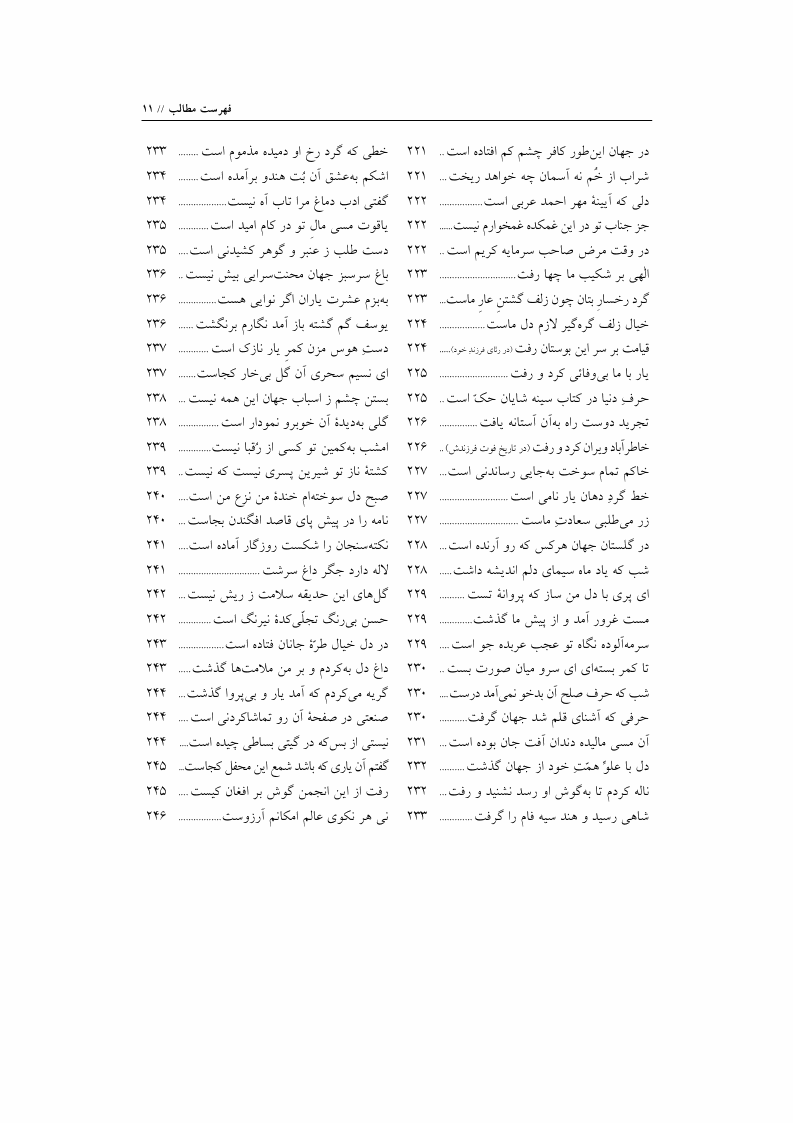 فهرست مطالب // ۱۱
در جهان این‌طور کافر چشم کم افتاده است .. ۲۲۱
شراب از خُم نه آسمان چه خواهد ریخت ... ۲۲۱
دلی که آیینۀ مهر احمد عربی است ................. ۲۲۲
جز جناب تو در این غمکده غمخوارم نیست...... ۲۲۲
در وقت مرض صاحب سرمایه کریم است .. ۲۲۲
الٰهی بر شکیب ما چها رفت .............................. ۲۲۳
گرد رخسارِ بتان چون زلف گشتنِ عارِ ماست... ۲۲۳
خیال زلف گره‌گیر لازم دل ماست .................. ۲۲۴
قیامت بر سر این بوستان رفت (در رثای فرزندِ خود)..... ۲۲۴
یار با ما بی‌وفائی کرد و رفت ........................... ۲۲۵
حرفِ دنیا در کتاب سینه شایان حکّ است .. ۲۲۵
تجرید دوست راه به‌آن آستانه یافت ............... ۲۲۶
خاطرآباد ویران کرد و رفت (در تاریخ فوت فرزندش) .. ۲۲۶
خاکم تمام سوخت به‌جایی رساندنی است... ۲۲۷
خط گردِ دهان یار نامی است ........................... ۲۲۷
زر می‌طلبی سعادتِ ماست ............................... ۲۲۷
در گلستان جهان هرکس که رو آرنده است ... ۲۲۸
شب که یاد ماه سیمای دلم اندیشه داشت..... ۲۲۸
ای پری با دل من ساز که پروانۀ تست .......... ۲۲۹
مست غرور آمد و از پیش ما گذشت............. ۲۲۹
سرمه‌آلوده نگاه تو عجب عربده جو است .... ۲۲۹
تا کمر بسته‌ای ای سرو میان صورت بست .. ۲۳۰
شب که حرف صلح آن بدخو نمی‌آمد درست.... ۲۳۰
حرفی که آشنای قلم شد جهان گرفت........... ۲۳۰
آن مسی مالیده دندان آفت جان بوده است ... ۲۳۱
دل با علوِّ همّتِ خود از جهان گذشت.......... ۲۳۲
ناله کردم تا به‌گوش او رسد نشنید و رفت... ۲۳۲
شاهی رسید و هند سیه فام را گرفت ............. ۲۳۳
خطی که گرد رخ او دمیده مذموم است ........ ۲۳۳
اشکم به‌عشق آن بُت هندو برآمده است ........ ۲۳۴
گفتی ادب دماغ مرا تاب آه نیست................... ۲۳۴
یاقوت مسی مالِ تو در کام امید است ............ ۲۳۵
دست طلب ز عنبر و گوهر کشیدنی است.... ۲۳۵
باغ سرسبز جهان محنت‌سرایی بیش نیست .. ۲۳۶
به‌بزم عشرت یاران اگر نوایی هست............... ۲۳۶
یوسف گم گشته باز آمد نگارم برنگشت ...... ۲۳۶
دستِ هوس مزن کمرِ یار نازک است ............ ۲۳۷
ای نسیم سحری آن گل بی‌خار کجاست....... ۲۳۷
بستن چشم ز اسباب جهان این همه نیست ... ۲۳۸
گلی به‌دیدۀ آن خوبرو نمودار است ................ ۲۳۸
امشب به‌کمین تو کسی از رُقبا نیست............. ۲۳۹
کشتۀ ناز تو شیرین پسری نیست که نیست .. ۲۳۹
صبح دل سوخته‌ام خندۀ من نزع من است.... ۲۴۰
نامه را در پیش پای قاصد افگندن بجاست ... ۲۴۰
نکته‌سنجان را شکست روزگار آماده است.... ۲۴۱
لاله دارد جگر داغ سرشت ............................... ۲۴۱
گل‌های این حدیقه سلامت ز ریش نیست ... ۲۴۲
حسن بی‌رنگ تجلّی‌کدۀ نیرنگ است ............. ۲۴۲
در دل خیال طرّۀ جانان فتاده است.................. ۲۴۳
داغ دل به‌کردم و بر من ملامت‌ها گذشت..... ۲۴۳
گریه می‌کردم که آمد یار و بی‌پروا گذشت... ۲۴۴
صنعتی در صفحۀ آن رو تماشاکردنی است .... ۲۴۴
نیستی از بس‌که در گیتی بساطی چیده است.... ۲۴۴
گفتم آن یاری که باشد شمع این محفل کجاست... ۲۴۵
رفت از این انجمن گوش بر افغان کیست .... ۲۴۵
نی هر نکوی عالم امکانم آرزوست................. ۲۴۶